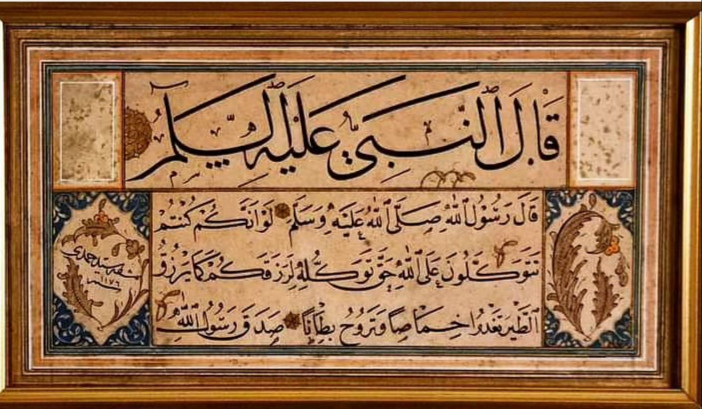 قَالَ النَّبِيُّ عَلَيْهِ السَّلَامُ
قَالَ رَسُولُ اللهِ صَلَّى اللهُ عَلَيْهِ وَسَلَّمَ لَوْ أَنَّكُمْ كُنْتُمْ
تَتَوَكَّلُونَ عَلَى اللهِ حَقَّ تَوَكُّلِهِ لَرَزَقَكُمْ كَمَا يَرْزُقُ
الطَّيْرَ تَغْدُوا خِمَاصًا وَتَرُوحُ بِطَانًا صَدَقَ رَسُولُ اللهِ
١١٧٦